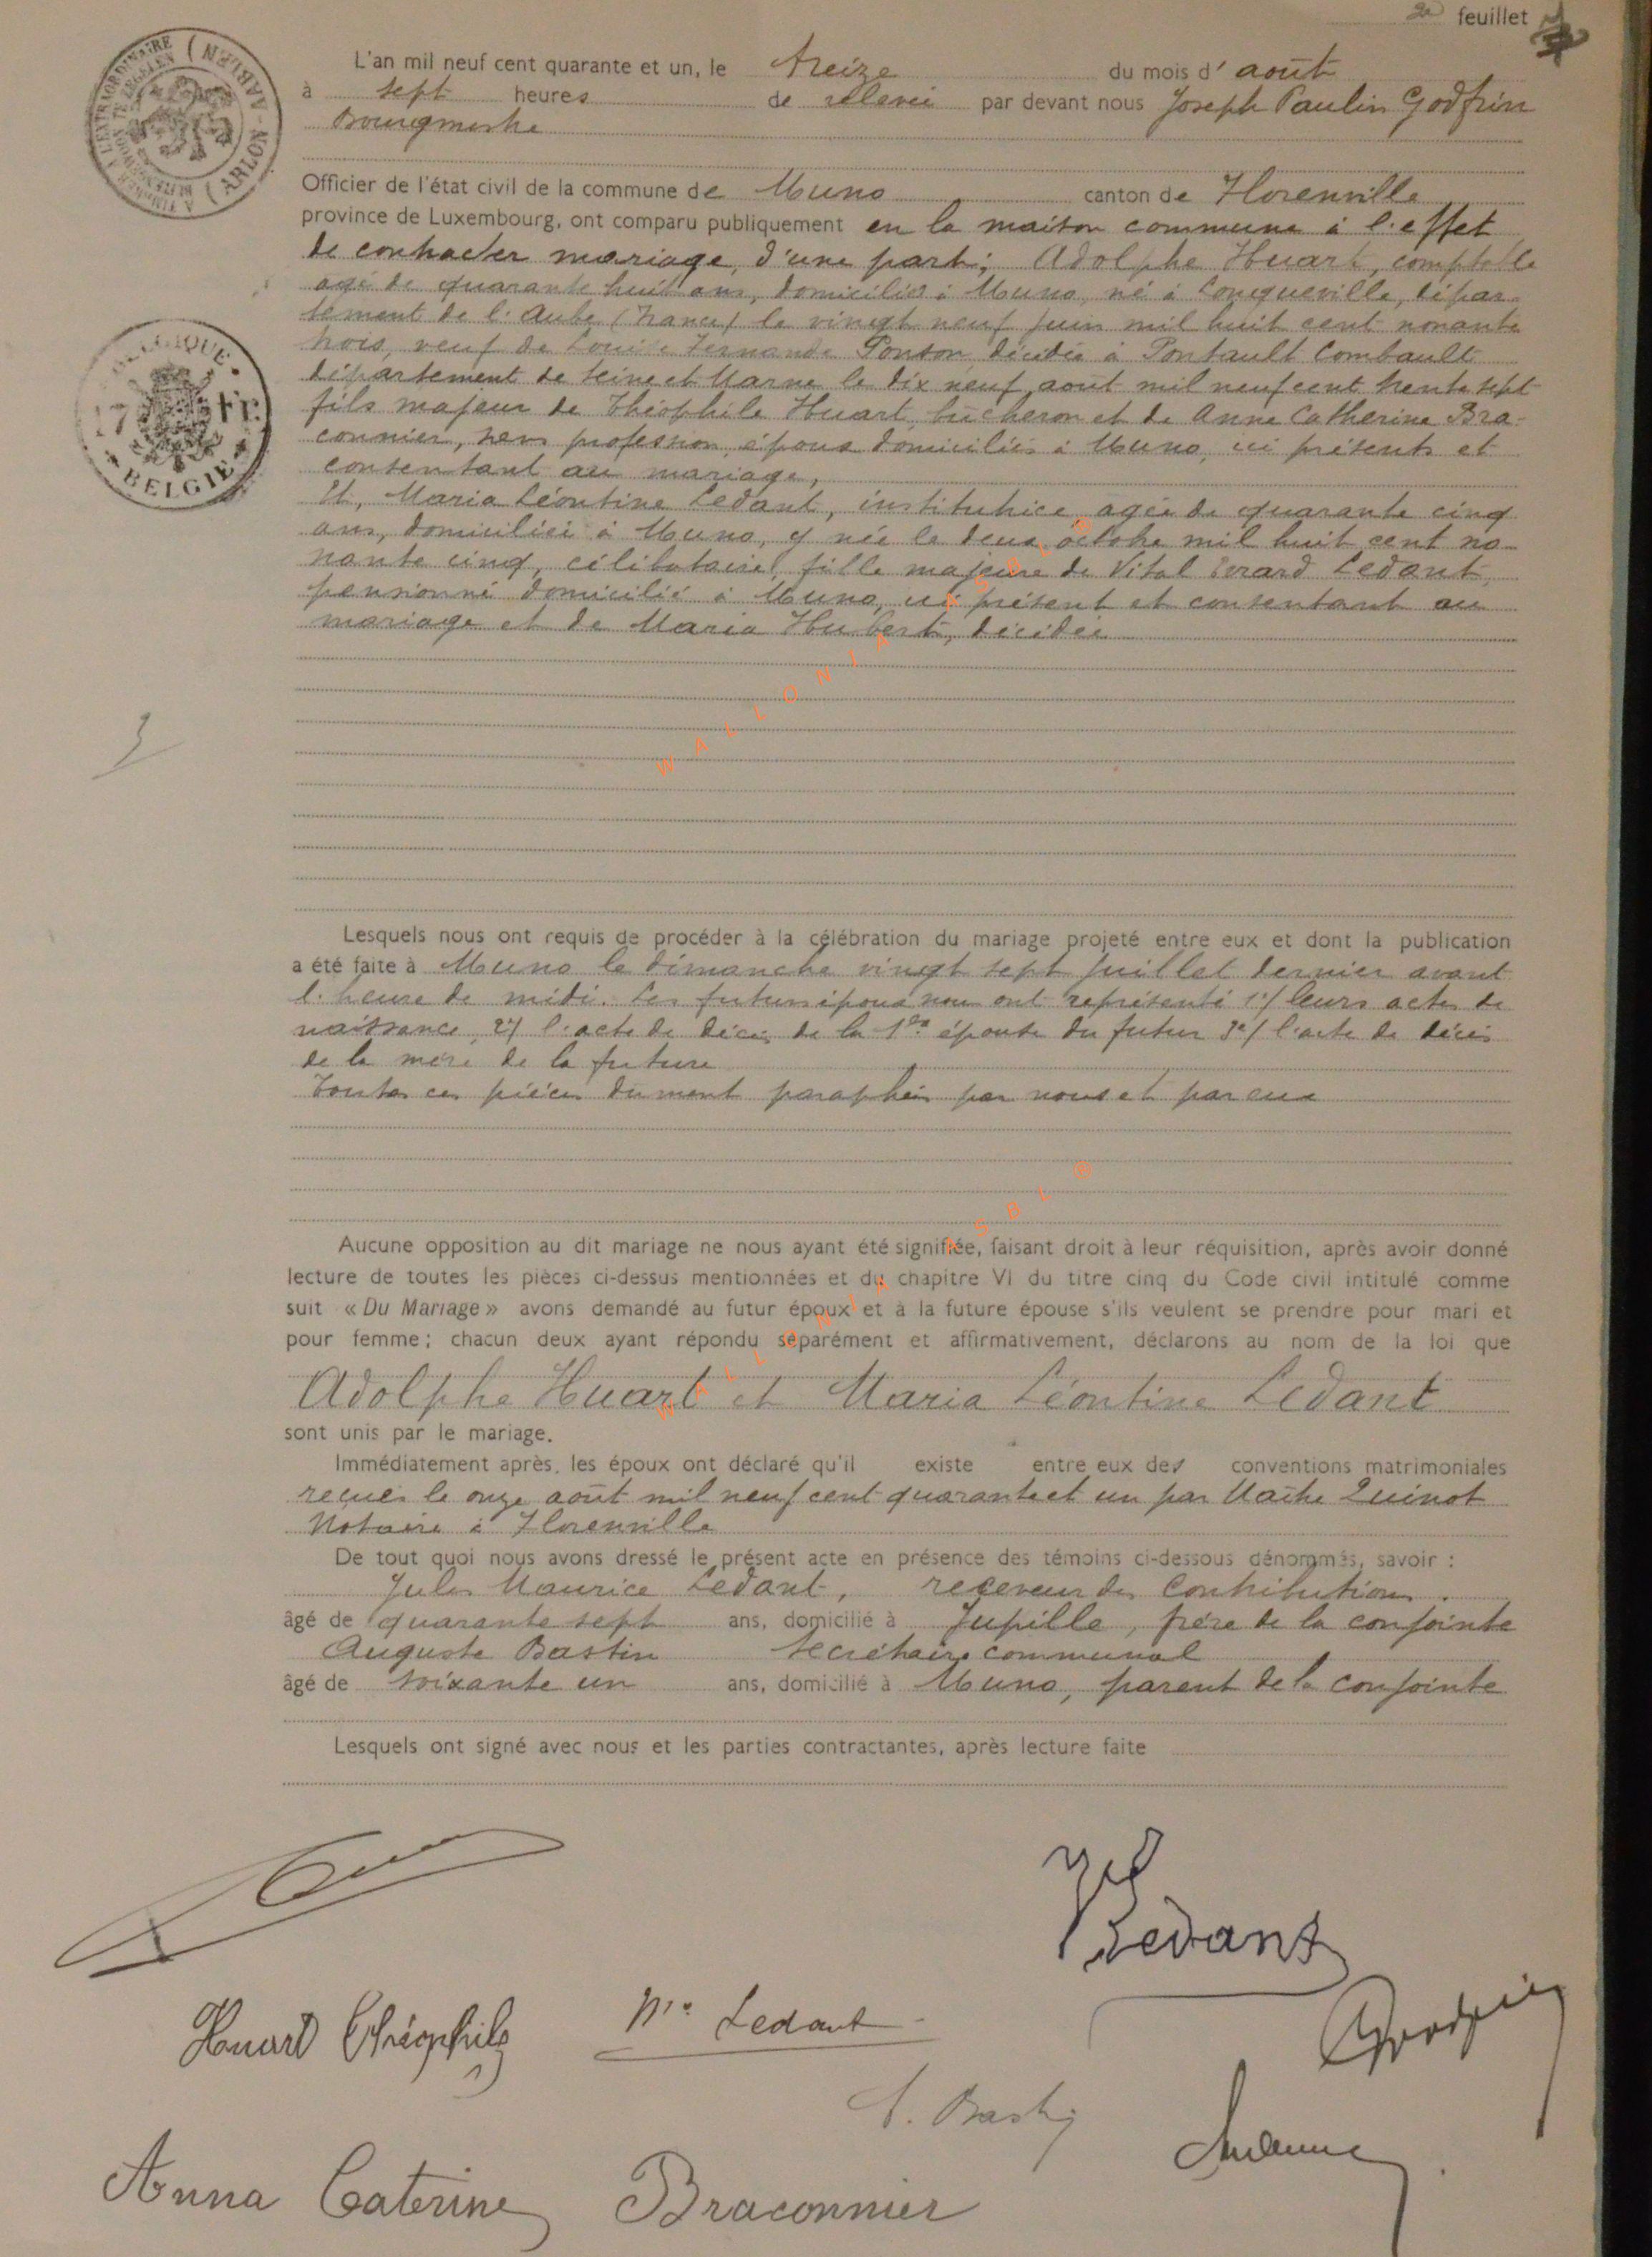 2e feuillet
L'an mil neuf cent quarante et un, le treize du mois d' août
à sept heures de relevée par devant nous Joseph Paulin Godfrin
Bourgmestre
Officier de l'état civil de la commune de Muno canton de Florenville
province de Luxembourg, ont comparu publiquement en la maison commune à l'effet
de contracter mariage, d'une part: Adolphe Huart, comptable
agé de quarante huit ans, domicilié à Muno, né à Longueville, dépar-
tement de l'Aube (France) le vingt neuf juin mil huit cent nonante
trois, veuf de Louise Fernande Ponson, décédée à Pontault Combault
département de Seine et Marne le dix neuf août mil neuf cent trente sept
fils majeur de Théophile Huart, bûcheron et de Anne Catherine Bra-
connier, sans profession, époux domiciliés à Muno, ici présents et
consentant au mariage,
Et, Maria Léontine Ledant, institutrice, agée de quarante cinq
ans, domiciliée à Muno, y née le deux octobre mil huit cent no-
nante cinq, célibataire, fille majeure de Vital Gerard Ledant,
pensionné domicilié à Muno, ici présent et consentant au
mariage et de Maria Hubert, décédée
Lesquels nous ont requis de procéder à la célébration du mariage projeté entre eux et dont la publication
a été faite à Muno le dimanche vingt sept juillet dernier avant
l'heure de midi. Les futurs époux nous ont représenté 1°/ leurs actes de
naissance, 2°/ l'acte de décès de la 1ère épouse du futur 3°/ l'acte de décès
de la mère de la future
Toutes ces pièces dument paraphées par nous et par eux
Aucune opposition au dit mariage ne nous ayant été signifiée, faisant droit à leur réquisition, après avoir donné
lecture de toutes les pièces ci-dessus mentionnées et du chapitre VI du titre cinq du Code civil intitulé comme
suit « Du Mariage » avons demandé au futur époux et à la future épouse s'ils veulent se prendre pour mari et
pour femme; chacun deux ayant répondu séparément et affirmativement, déclarons au nom de la loi que
Adolphe Huart et Maria Léontine Ledant
sont unis par le mariage.
Immédiatement après, les époux ont déclaré qu'il existe entre eux des conventions matrimoniales
reçues le onze août mil neuf cent quarante et un par Maître Quinot
Notaire à Florenville
De tout quoi nous avons dressé le présent acte en présence des témoins ci-dessous dénommés, savoir :
Jules Maurice Ledant, receveur des Contributions.
âgé de quarante sept ans, domicilié à Jupille, frère de la conjointe
Auguste Bastin Secrétaire communal
âgé de soixante un ans, domicilié à Muno, parent de la conjointe
Lesquels ont signé avec nous et les parties contractantes, après lecture faite
Ledant
Huart Théophile Mia Ledant
Godfrin
A. Bastin
Anna Caterine Braconnier
BELGIQUE
17 FR
BELGIE
(ARLON - AARLEN)
WALLONIA ASBL ®
WALLONIA ASBL ®